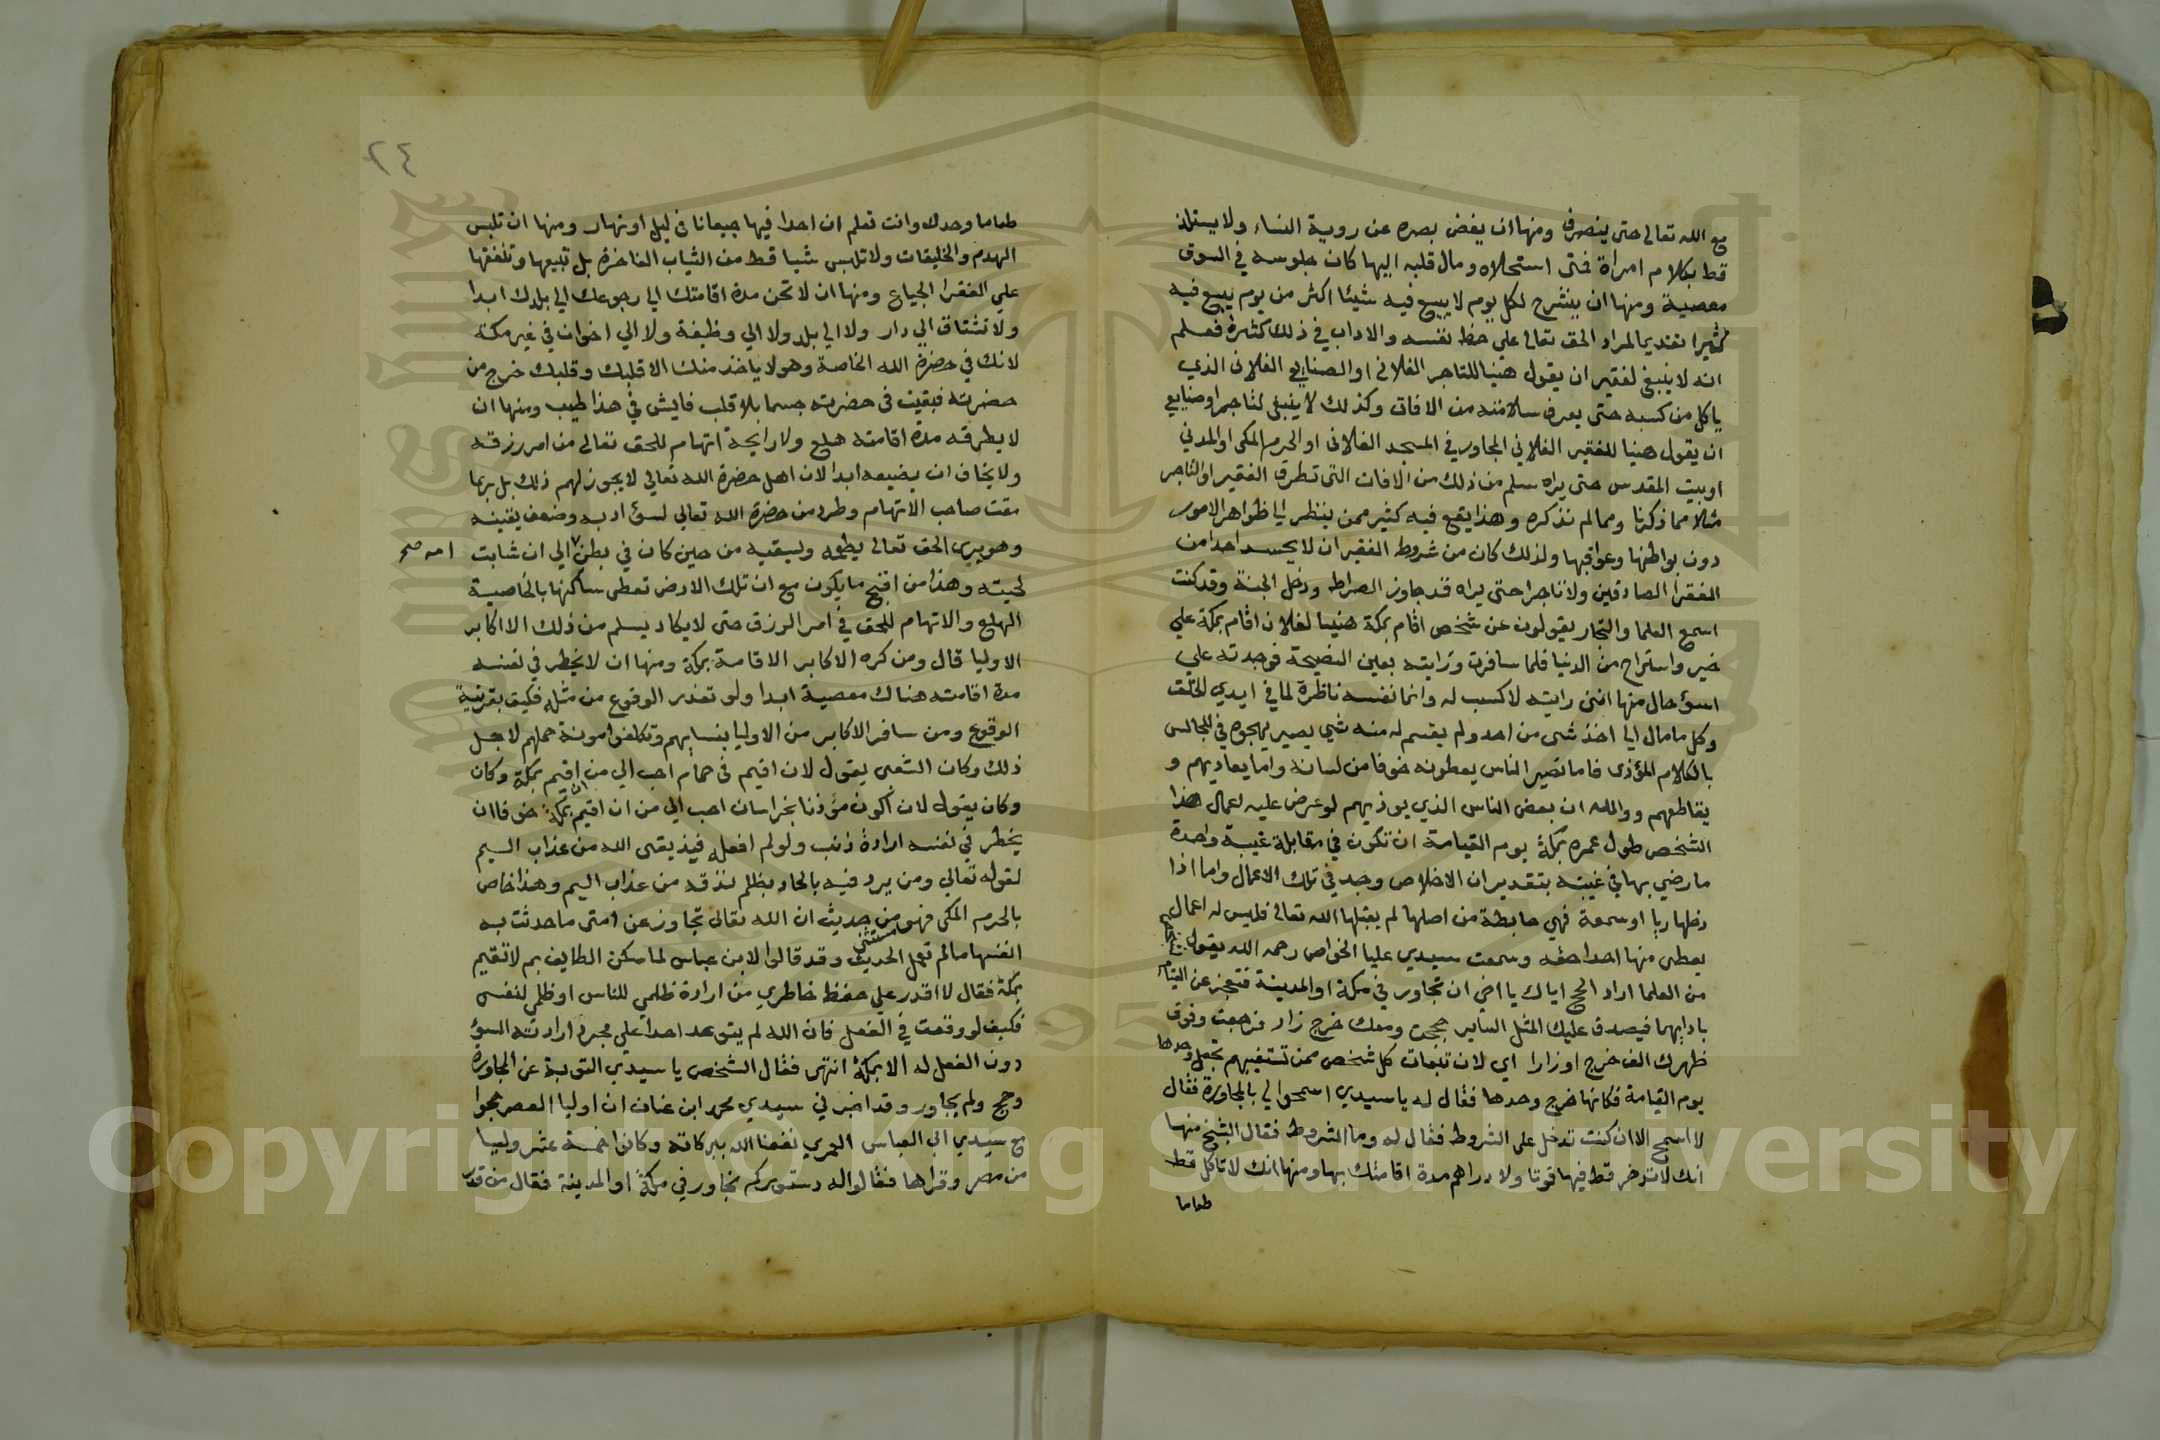 مع الله تعالى حتى ينصرف ومنها ان يغض بصره عن روية النساء ولا يستلذ
قط بكلام امراة فمتى استحلاه ومال قلبه اليها كان جلوسه في السوق
معصية ومنها ان ينشرح لكل يوم لا يبيع فيه شيئا اكثر من يوم يبيع فيه
كثيرا تقديما لمراد الحق تعالى على حظ نفسه والاداب في ذلك كثيرة فعلم
انه لا ينبغي لفقير ان يقول هنيا للتاجر الفلاني او الصنايعي الفلاني الذي
ياكل من كسبه حتى يعرف سلامته من الافات وكذلك لا ينبغي لتاجر او صنايعي
ان يقول هنيا للفقير الفلاني المجاور في المسجد الفلاني او الحرم المكي او المدني
او بيت المقدس حتى يراه سلم من ذلك من الافات التي تطرق الفقير او التاجر
مثلا مما ذكرنا ومما لم نذكره وهذا يقع فيه كثير ممن ينظر الي ظواهر الامور
دون بواطنها وعواقبها ولذلك كان من شروط الفقير ان لا يحسد احدا من
الفقرا الصادقين ولا تاجرا حتى يراه قد جاوز الصراط ودخل الجنة وقد كنت
اسمع العلما والتجار يقولون عن شخص اقام بمكة هنيا لفلان اقام بمكة علي
خير واستراح من الدنيا فلما سافرت ورايته بعين النصيحة فوجدته علي
اسوء حال منها انني رايته لا كسب له وانما نفسه ناظرة لما في ايدي الخلق
وكل ما مال الي اخذ شي من احد ولم يقسم له منه شي يصير يهجوه في المجالس
بالكلام المؤذي فاما تصير الناس يعطونه خوفا من لسانه واما يعاديهم و
يقاطعهم ووالله ان بعض الناس الذي يوذيهم لو عرض عليه اعمال هذا
الشخص طول عمره بمكة يوم القيامة ان تكون في مقابلة غيبة واحدة
ما رضي بها في غيبته بتقدير ان الاخلاص وجد في تلك الاعمال واما اذا
دخلها ريا او سمعة فهي حابطة من اصلها لم يقبلها الله تعالى فليس له اعمال
يعطى منها احدا حقه وسمعت سيدي عليا الخواص رحمه الله يقول
من العلما اراد الحج اياك يا اخي ان تجاور في مكة او المدينة فتعجز عن القيام
بادابهما فيصدق عليك المثل الساير حججت ومعك خرج زار فرجعت وفوق
ظهرك الف خرج اوزارا اي لان تبعات كل شخص ممن تستغيبهم تجعل وحدها
يوم القيامة فكانها خرج وحدها فقال له يا سيدي اسمحوا لي بالمجاورة فقال
لا اسمح الا ان كنت تدخل على الشروط فقال له وما الشروط فقال الشيخ منها
انك لا تدخر قط فيها قوتا ولا دراهم مدة اقامتك بها ومنها انك لا تاكل قط
طعاما
٢٤
طعاما وحدك وانت تعلم ان احدا فيها جيعانا في ليل او نهار ومنها ان تلبس
الهدم والخليقات ولا تلبس شيا قط من الثياب الفاخرة بل تبيعها وتنفقها
علي الفقرا الجياع ومنها ان لا تحن مدة اقامتك الي رجوعك الي بلدك ابدا
ولا تشتاق الي دار ولا الي بلد ولا الي وظيفة ولا الي اخوان في غير مكة
لانك في حضرة الله الخاصة وهو لا ياخذ منك الا قلبك وقلبك خرج من
حضرته فبقيت في حضرته جسما بلا قلب فايش في هذا طيب ومنها ان
لا يطرقه مدة اقامته هلع ولا رايحة اتهام للحق تعالى من امر رزقه
ولا يخاف ان يضيعه ابدا لان اهل حضرة الله تعالي لا يجوز لهم ذلك بل ربما
مقت صاحب الاتهام وطرد من حضرة الله تعالى لسوء ادبه وضعف يقينه
وهو يري الحق تعالى يطعمه ويسقيه من حين كان في بطن الي ان شابت
امه صح
لحيته وهذا من اقبح ما يكون مع ان تلك الارض تعطى ساكنها بالخاصية
الهلع والاتهام للحق في امر الرزق حتى لا يكاد يسلم من ذلك الا اكابر
الاوليا قال ومن كره الاكابر الاقامة بمكة ومنها ان لا يخطر في نفسه
مدة اقامته هناك معصية ابدا ولو تعذر الوقوع من مثله فكيف بقريبة
الوقوع ومن سافر الاكابر من الاوليا بنسايهم وتكلفوا مونة حملهم لاجل
ذلك وكان الشعبي يقول لان اقيم في حمام احب الي من ان اقيم بمكة وكان
وكان يقول لان اكون مؤذنا بخراسان احب الي من ان اقيم بمكة خوفا ان
يخطر في نفسه ارادة ذنب ولو لم افعله فيذيقني الله من عذاب اليم
لقوله تعالي ومن يرد فيه بالحاد بظلم نذقه من عذاب اليم وهذا خاص
بالحرم المكي فهو مستثنى من حديث ان الله تعالى تجاوز عن امتي ما حدثت به
انفسها مالم تعمل الحديث وقد قالوا لابن عباس لما سكن الطايف بم لا تقيم
بمكة فقال لا اقدر علي حفظ خاطري من ارادة ظلمي للناس او ظلمي لنفسي
فكيف لو وقعت في الفعل فان الله لم يتوعد احدا علي مجرد ارادته السوء
دون الفعل له الا بمكة انتهى فقال الشخص يا سيدي التوبة عن المجاورة
وحج ولم يجاور وقد اخبرني سيدي محمد ابن عنان ان اوليا العصر حجوا
مع سيدي ابي العباس الغمري نفعنا الله ببركاته وكانوا خمسة عشر وليا
من مصر وقراها فقالوا له دستوركم نجاور في مكة او المدينة فقال من قدر